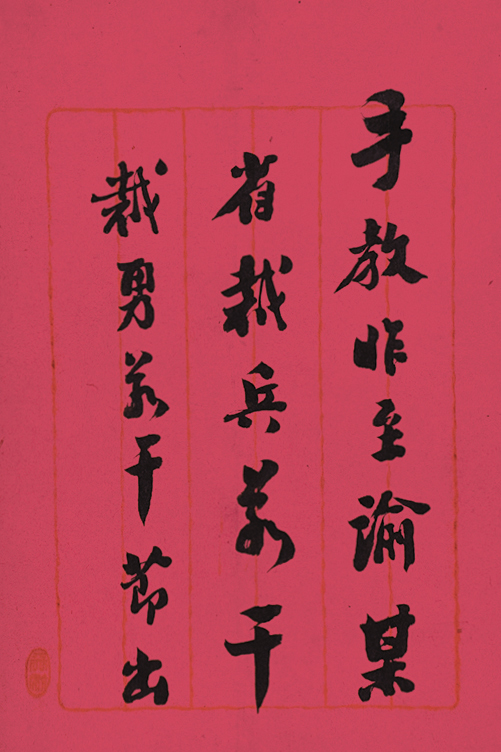 手教昨至諭某
省裁兵若干
裁勇若干節出